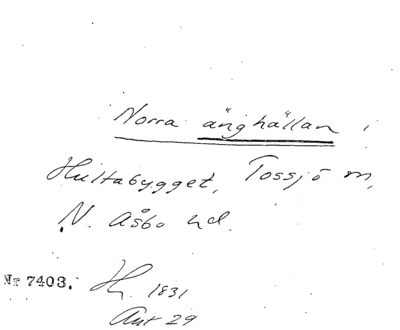 Norra änghällan i
Hultabygget, Tossjö m,
N. Åsbo hd.
Nr 7403. H. 1831
Akt 29